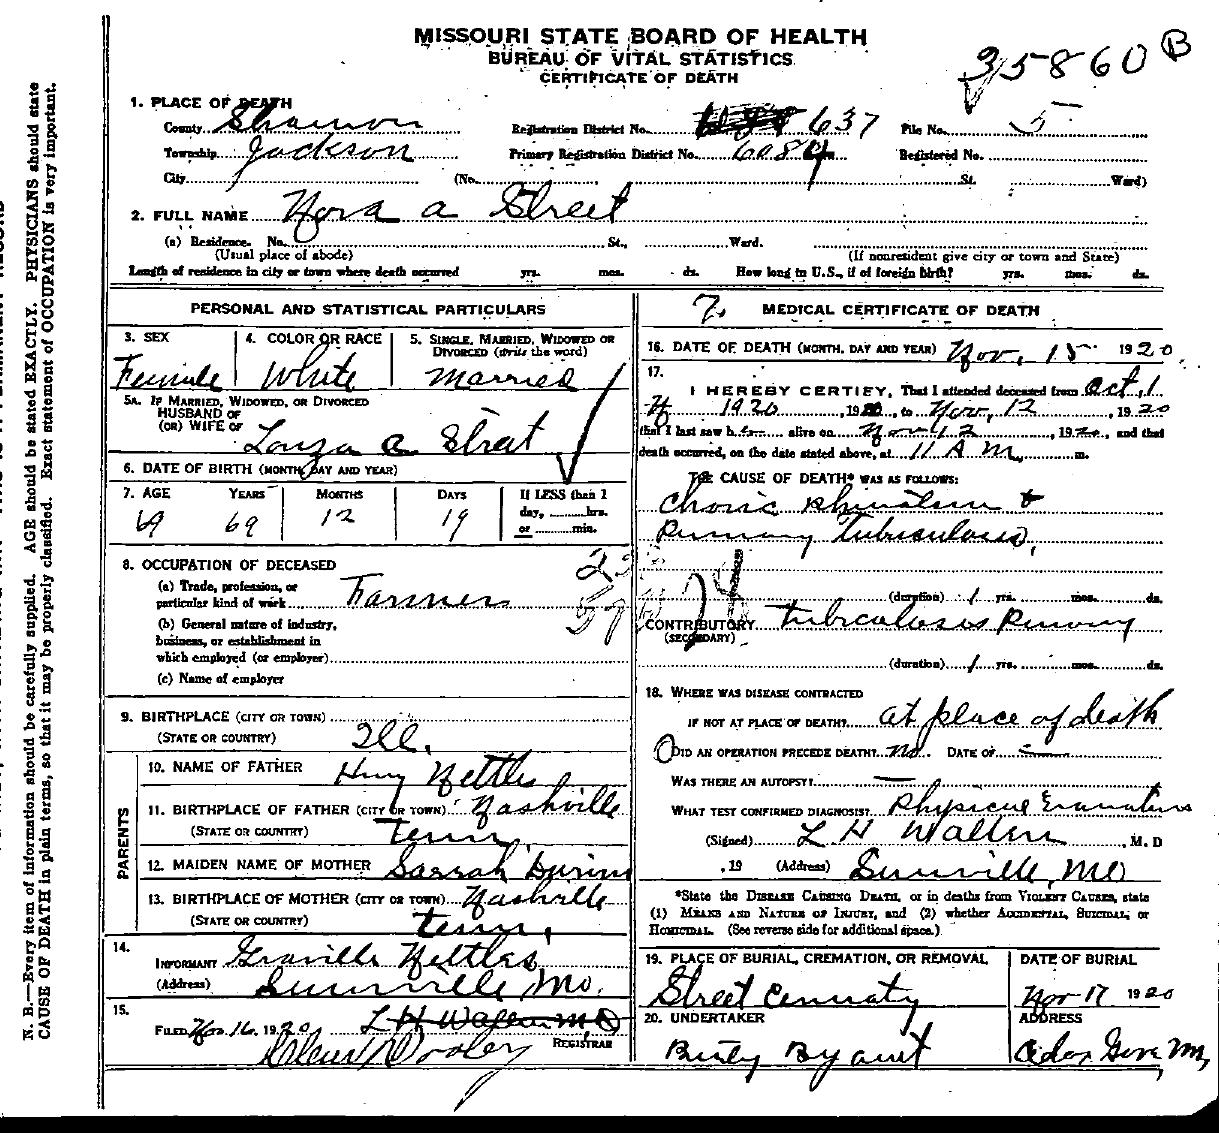 MISSOURI STATE BOARD OF HEALTH
BUREAU OF VITAL STATISTICS
CERTIFICATE OF DEATH
35860 B
1. PLACE OF DEATH
County Shannon Registration District No. 637 File No. 5
Township Jackson Primary Registration District No. 6084 Registered No.
City (No. St. Ward)
2. FULL NAME Nora a Street
(a) Residence. No. St., Ward.
(Usual place of abode) (If nonresident give city or town and State)
Length of residence in city or town where death occurred yrs. mos. ds. How long in U.S., if of foreign birth? yrs. mos. ds.
PERSONAL AND STATISTICAL PARTICULARS
3. SEX 4. COLOR OR RACE 5. SINGLE, MARRIED, WIDOWED OR DIVORCED (write the word)
Female White Married
5A. IF MARRIED, WIDOWED, OR DIVORCED
HUSBAND OF
(OR) WIFE OF Louza a Street
6. DATE OF BIRTH (MONTH, DAY AND YEAR)
7. AGE YEARS MONTHS DAYS If LESS than 1
day, hrs.
or min.
69 69 12 19
8. OCCUPATION OF DECEASED
(a) Trade, profession, or
particular kind of work Farmer
(b) General nature of industry,
business, or establishment in
which employed (or employer)
(c) Name of employer
9. BIRTHPLACE (CITY OR TOWN)
(STATE OR COUNTRY) Ill.
PARENTS
10. NAME OF FATHER Henry Nettles
11. BIRTHPLACE OF FATHER (CITY OR TOWN) Nashville
(STATE OR COUNTRY) Tenn.
12. MAIDEN NAME OF MOTHER Sarrah
13. BIRTHPLACE OF MOTHER (CITY OR TOWN) Nashville
(STATE OR COUNTRY) Tenn.
14.
INFORMANT Graville Nettles
(Address) Mo.
15.
FILED Nov 16, 1920 L H M D
Dooley REGISTRAR
7. MEDICAL CERTIFICATE OF DEATH
16. DATE OF DEATH (MONTH, DAY AND YEAR) Nov, 15 1920
17.
I HEREBY CERTIFY, That I attended deceased from Oct, 1
1920, 19, to Nov, 12, 1920
that I last saw h alive on Nov 12, 1920, and that
death occurred, on the date stated above, at 11 A M, m.
THE CAUSE OF DEATH* WAS AS FOLLOWS:
Chonic &
Tuberculosis,
(duration) 1 yrs. mos. ds.
CONTRIBUTORY tuberculosis
(SECONDARY)
(duration) 1 yrs. mos. ds.
18. WHERE WAS DISEASE CONTRACTED
IF NOT AT PLACE OF DEATH? at place of death
DID AN OPERATION PRECEDE DEATH? no. DATE OF
WAS THERE AN AUTOPSY?
WHAT TEST CONFIRMED DIAGNOSIS? Physical
(Signed) L. H , M. D
, 19 (Address) , MO
*State the DISEASE CAUSING DEATH, or in deaths from VIOLENT CAUSES, state
(1) MEANS AND NATURE OF INJURY, and (2) whether ACCIDENTAL, SUICIDAL, or
HOMICIDAL. (See reverse side for additional space.)
19. PLACE OF BURIAL, CREMATION, OR REMOVAL DATE OF BURIAL
Street Nov 17 1920
20. UNDERTAKER ADDRESS
N. B.—Every item of information should be carefully supplied. AGE should be stated EXACTLY. PHYSICIANS should state
CAUSE OF DEATH in plain terms, so that it may be properly classified. Exact statement of OCCUPATION is very important.